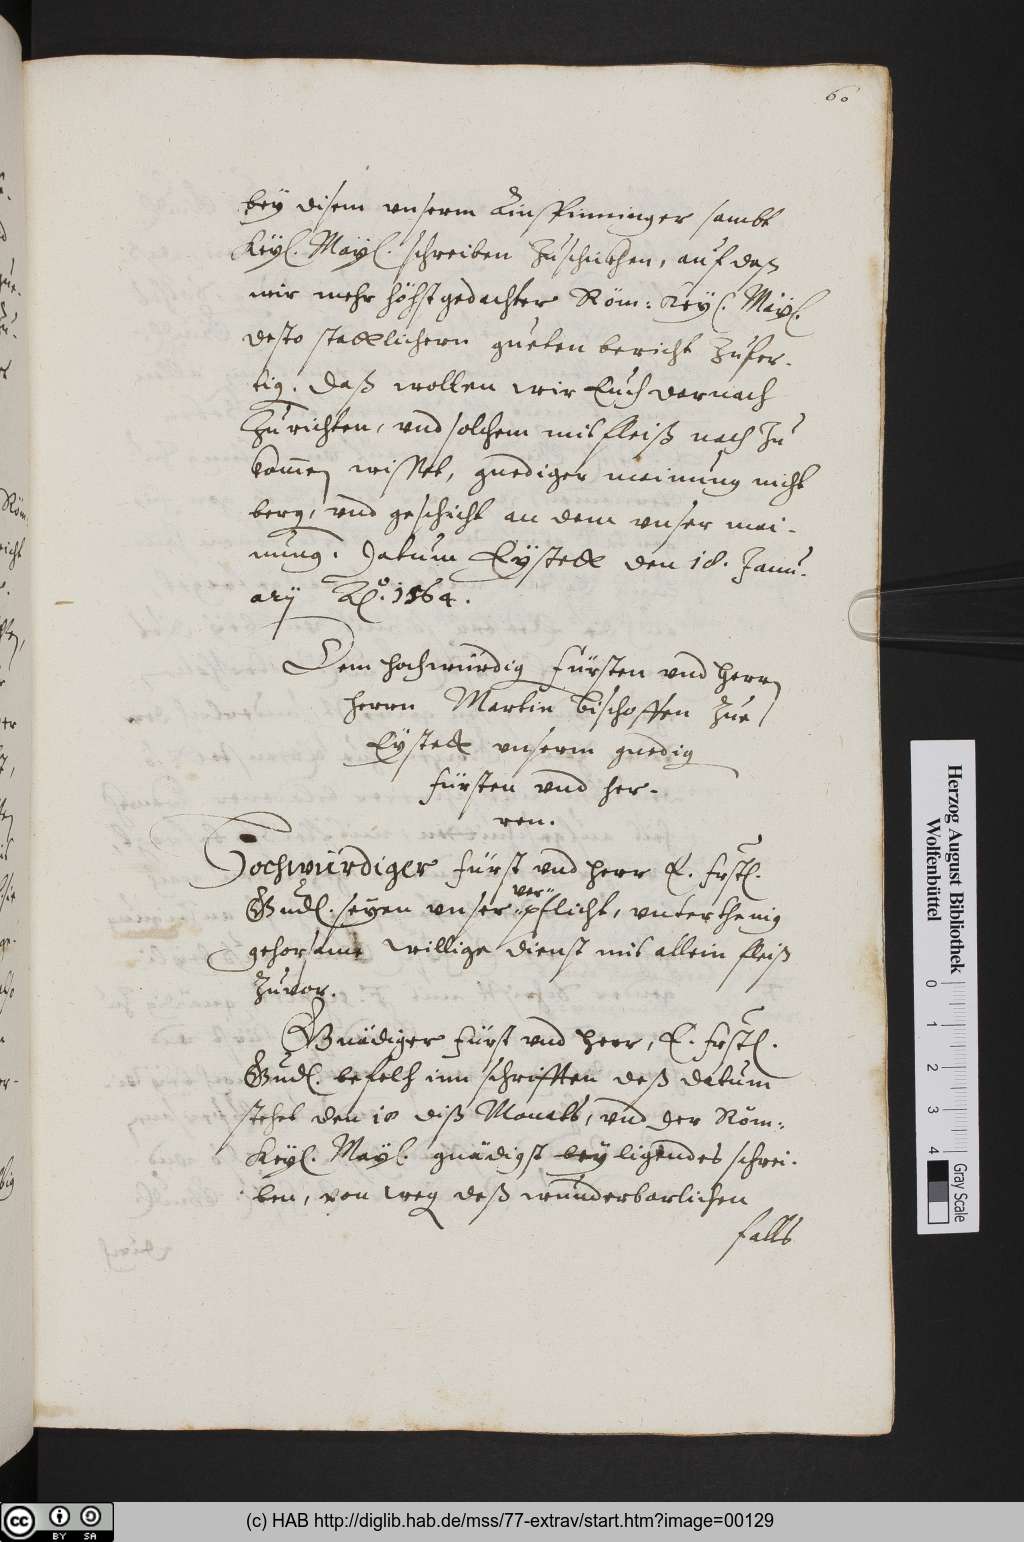 60
bey disem vnserm Einspinninger sambt
Keyl. Mayl. schreiben zuschickhen, auf daß
wir mehr höhstgedachter Röm: Keyl. Mayl.
desto stattlichern gueten bericht zufer-
tig. Daß wollen wir Euch darnach
zurichten, vnd solchem mit fleiß nach zu
kom̄en wisset, gnediger meinung nicht
berg, vnd geschicht an dem vnser mei-
nung. Datum Eystett den 18. Janu-
arij Aō. 1564.
Dem hochwürdig Fürsten vnd herrn
herrn Martin Bischoffen zue
Eystett vnserm gnedig
Fürsten vnd her-
ren.
Hochwürdiger Fürst vnd herr E. Frstl.
Gnudl. seyen vnser ver-pflicht, vnterthenig
gehorsame willige dienst mit allem fleiß
zuuor.
Gnädiger Fürst vnd herr, E. Frstl.
Gnudl. befelch inn schrifften deß datum
stehet den 18 diß Monats, vnd der Röm:
Keyl. Mayl. gnädigst beyligendes schrei-
ben, von weg deß wunderbarlichen
falls
Herzog August Bibliothek
Wolfenbüttel
0 1 2 3 4
Gray Scale
cc BY SA
(c) HAB http://diglib.hab.de/mss/77-extrav/start.htm?image=00129